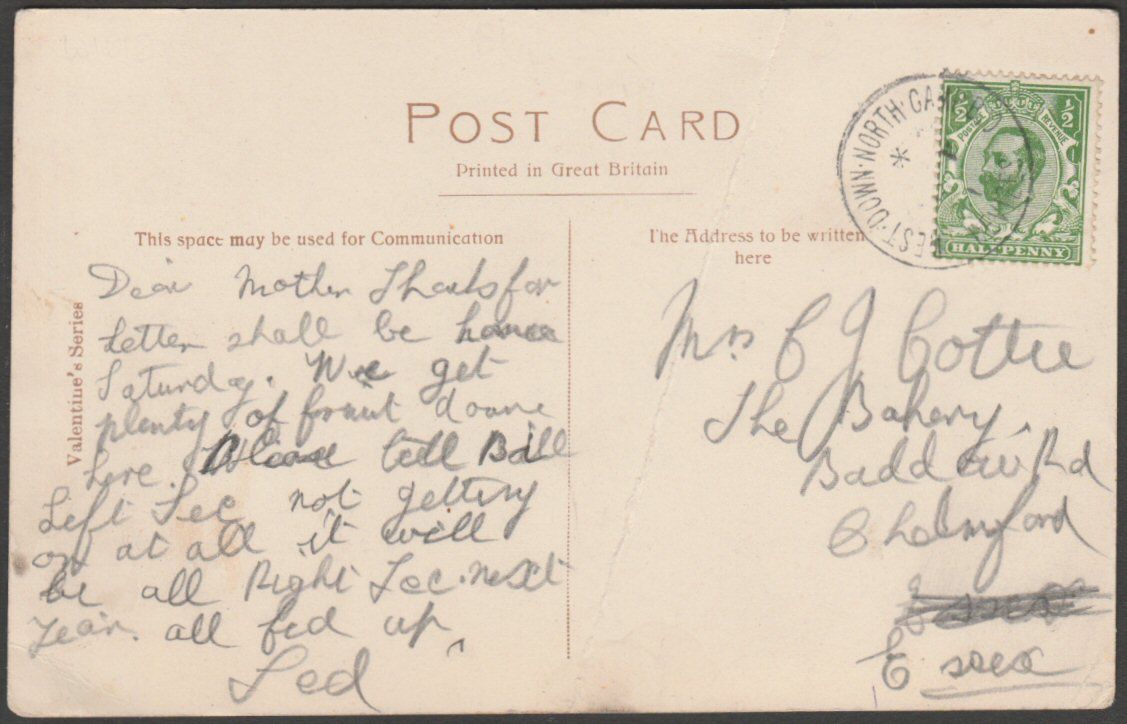 POST CARD
Printed in Great Britain
This space may be used for Communication
The Address to be written
here
Valentine's Series
WEST·DOWN·NORTH·CAMP
½ ½
POSTAGE REVENUE
HALFPENNY
Dear Mother Thanks for
Letter shall be
Saturday. We get
plenty of down
here. Please tell Bill
Left Sec not getting
on at all it will
be all Right Sec. next
Year. all fed up
Ted
Mrs C J Cottee
The Bakery
Baddow Rd
Chelmsford
Essex
Essex